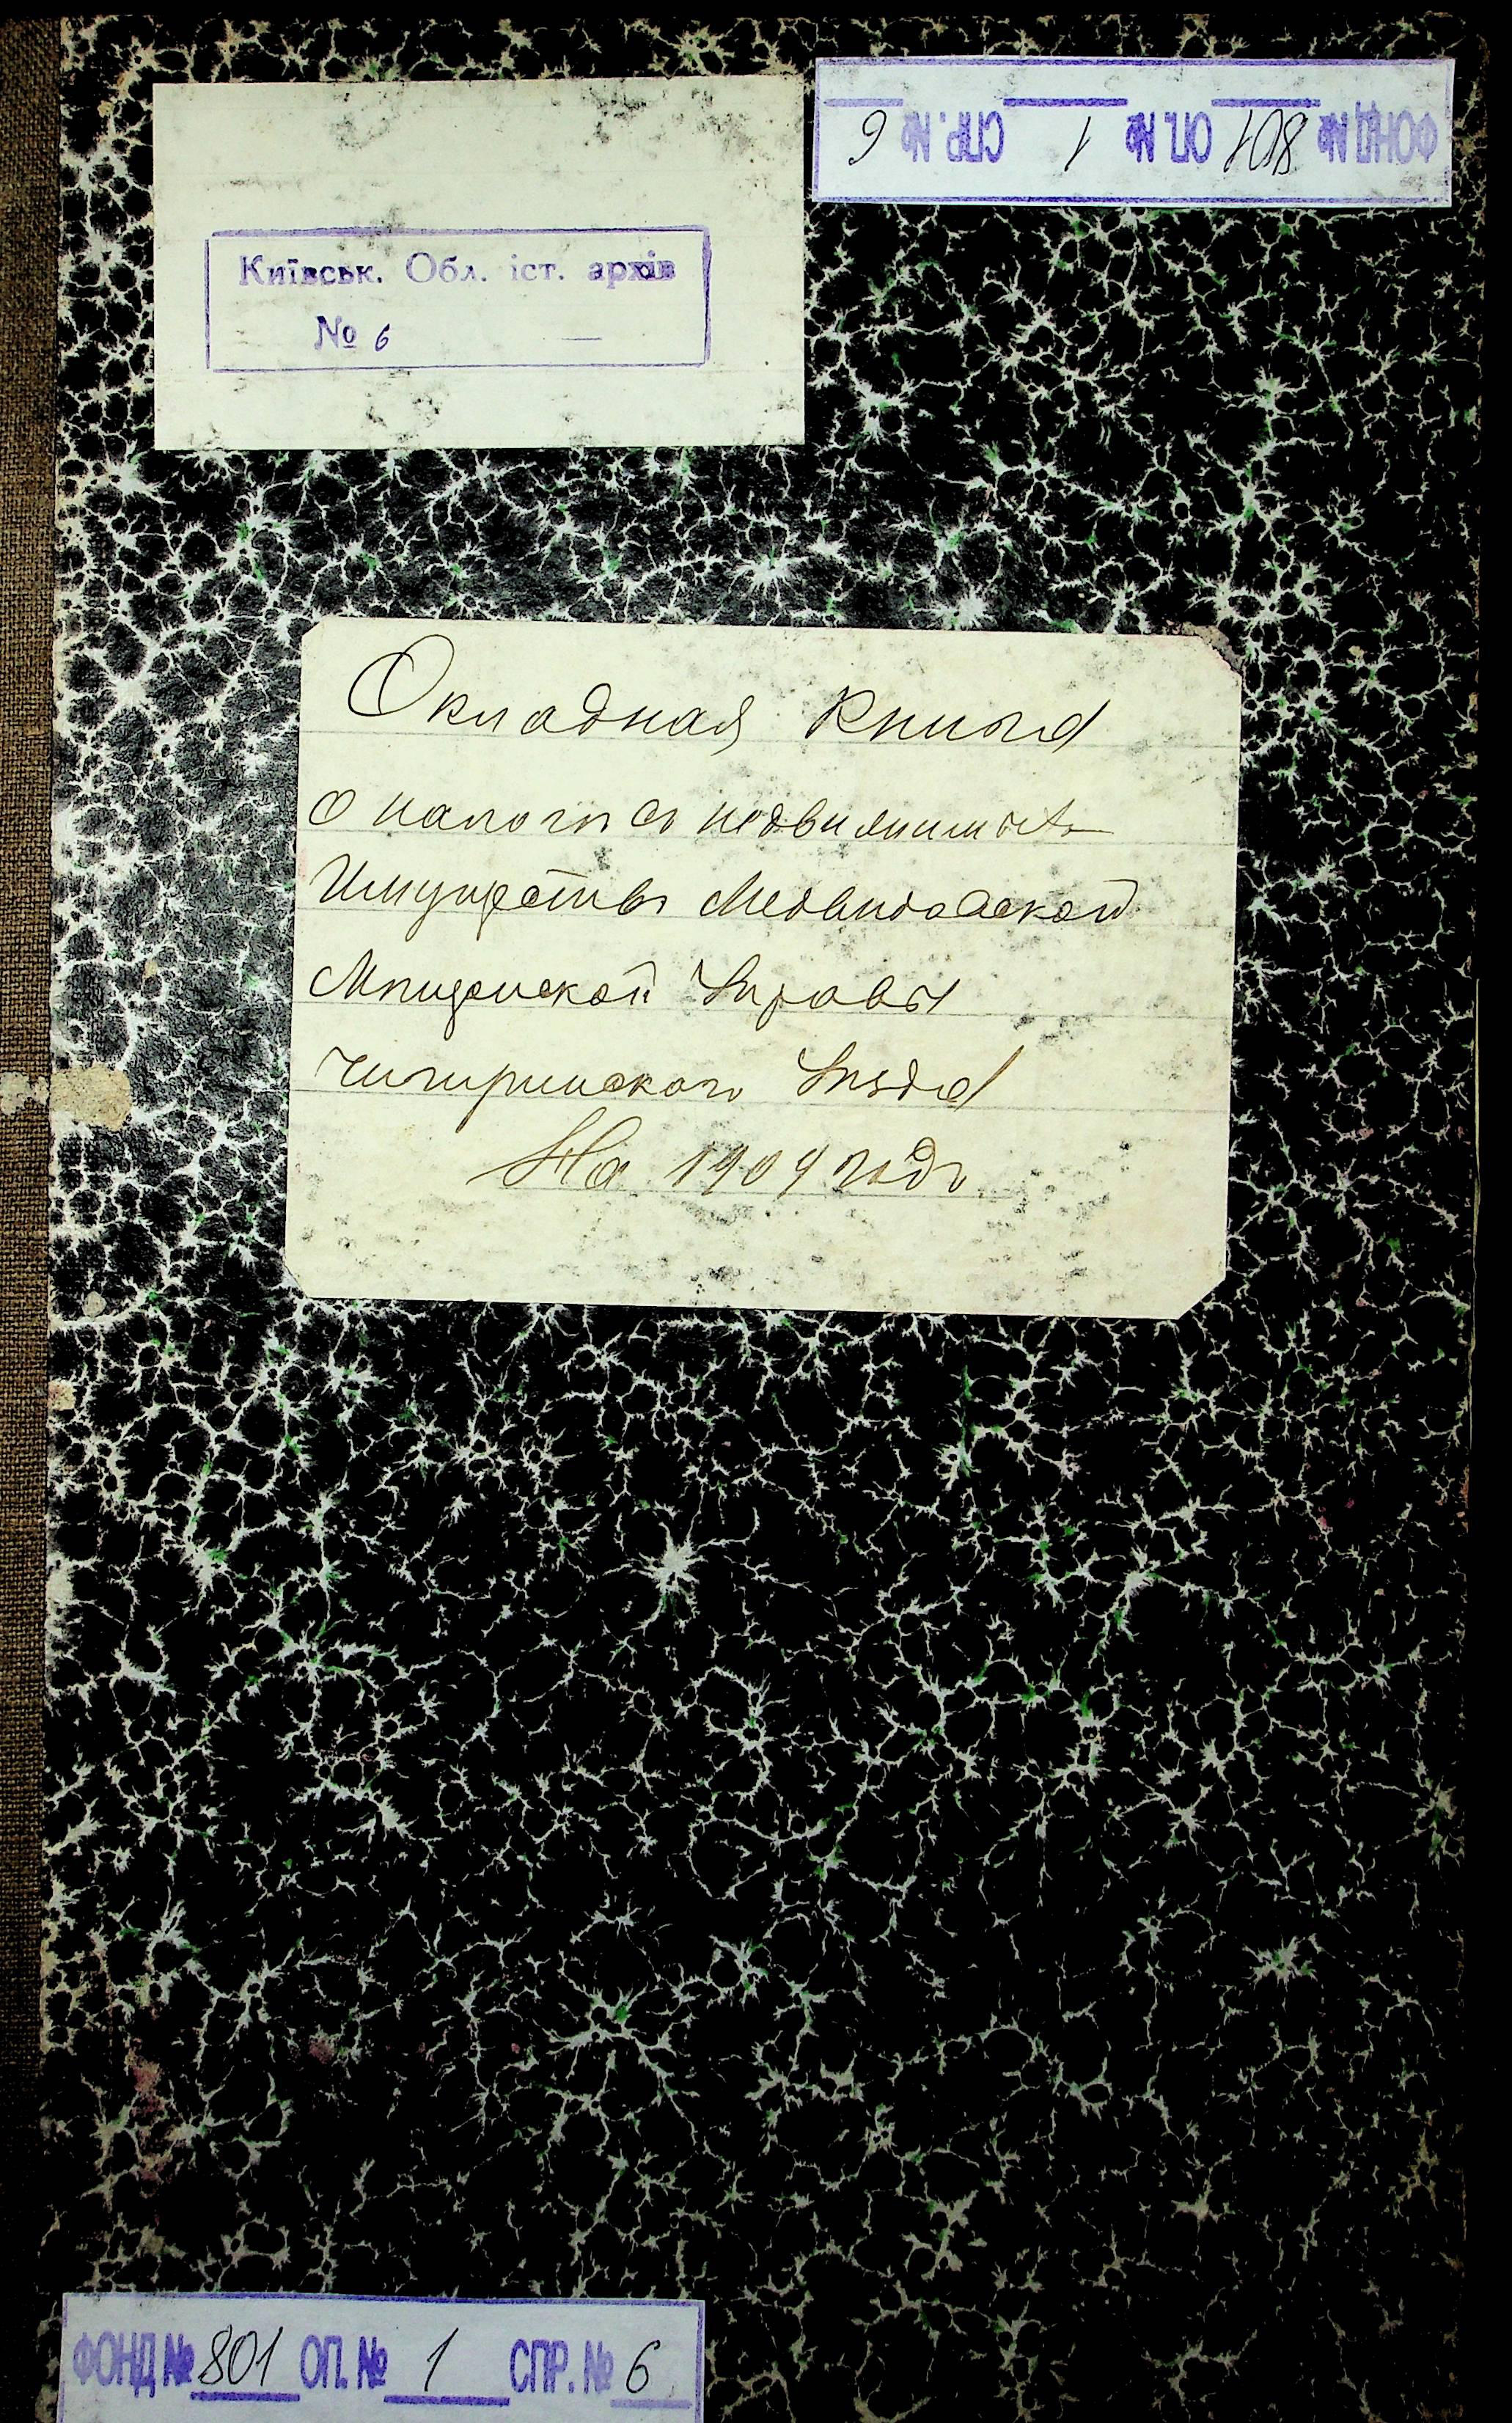 ФОНД № 801 ОП. № 1 СПР. № 6
Київськ. Обл. іст. архів
№ 6
Окладная Книга
о налоги съ недвижимыхъ
Имуществъ Медвидовской
Мпщанской Управы
Чигиринскаго Упзда
На 1904 годъ
ФОНД № 801 ОП. № 1 СПР. № 6